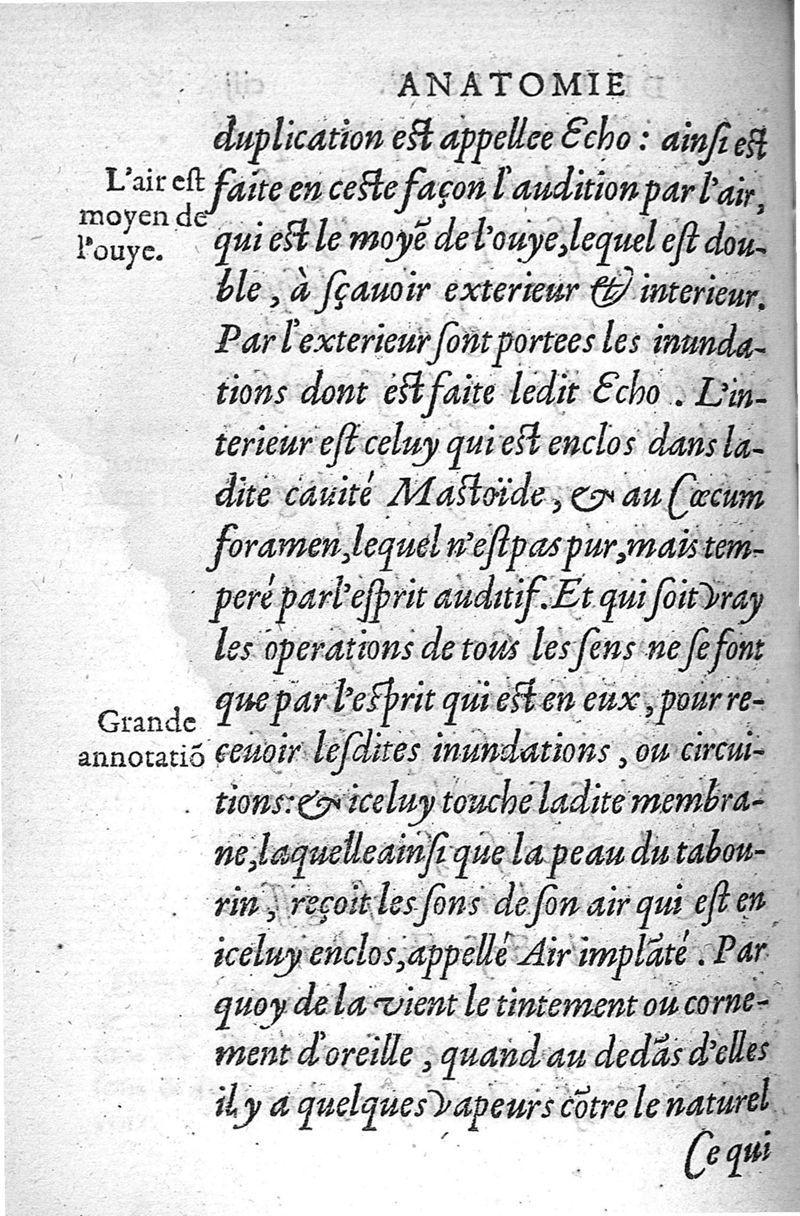 ANATOMIE
duplication est appellee Echo : ainſi est
L'air eſt
moyen de
l'ouye.
faite en ceste façon l'audition par l'air,
qui est le moyẽ de l'ouye, lequel eſt dou-
ble, à ſçauoir exterieur & interieur.
Par l'exterieur ſont portees les inunda-
tions dont est faite ledit Echo . L'in-
terieur eſt celuy qui est enclos dans la-
dite cauité Mastoïde, & au Cœcum
foramen, lequel n'eſt pas pur, mais tem-
peré par l'eſprit auditif. Et qui ſoit vray
les operations de tous les ſens ne ſe font
que par l'esprit qui est en eux, pour re-
Grande
annotatiõ
ceuoir leſdites inundations, ou circui-
tions: & iceluy touche ladite membra-
ne, laquelle ainſi que la peau du tabou-
rin, reçoit les ſons de ſon air qui eſt en
iceluy enclos, appellé Air implãté. Par
quoy de la vient le tintement ou corne-
ment d'oreille, quand au dedãs d'elles
il y a quelques vapeurs cõtre le naturel
Ce qui